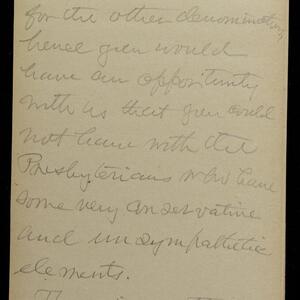 for the other denominations
hence you would
have an opportunity
with us that you could
not have with the
Presbyterians who have
some very conservative
and unsympathetic
elements.